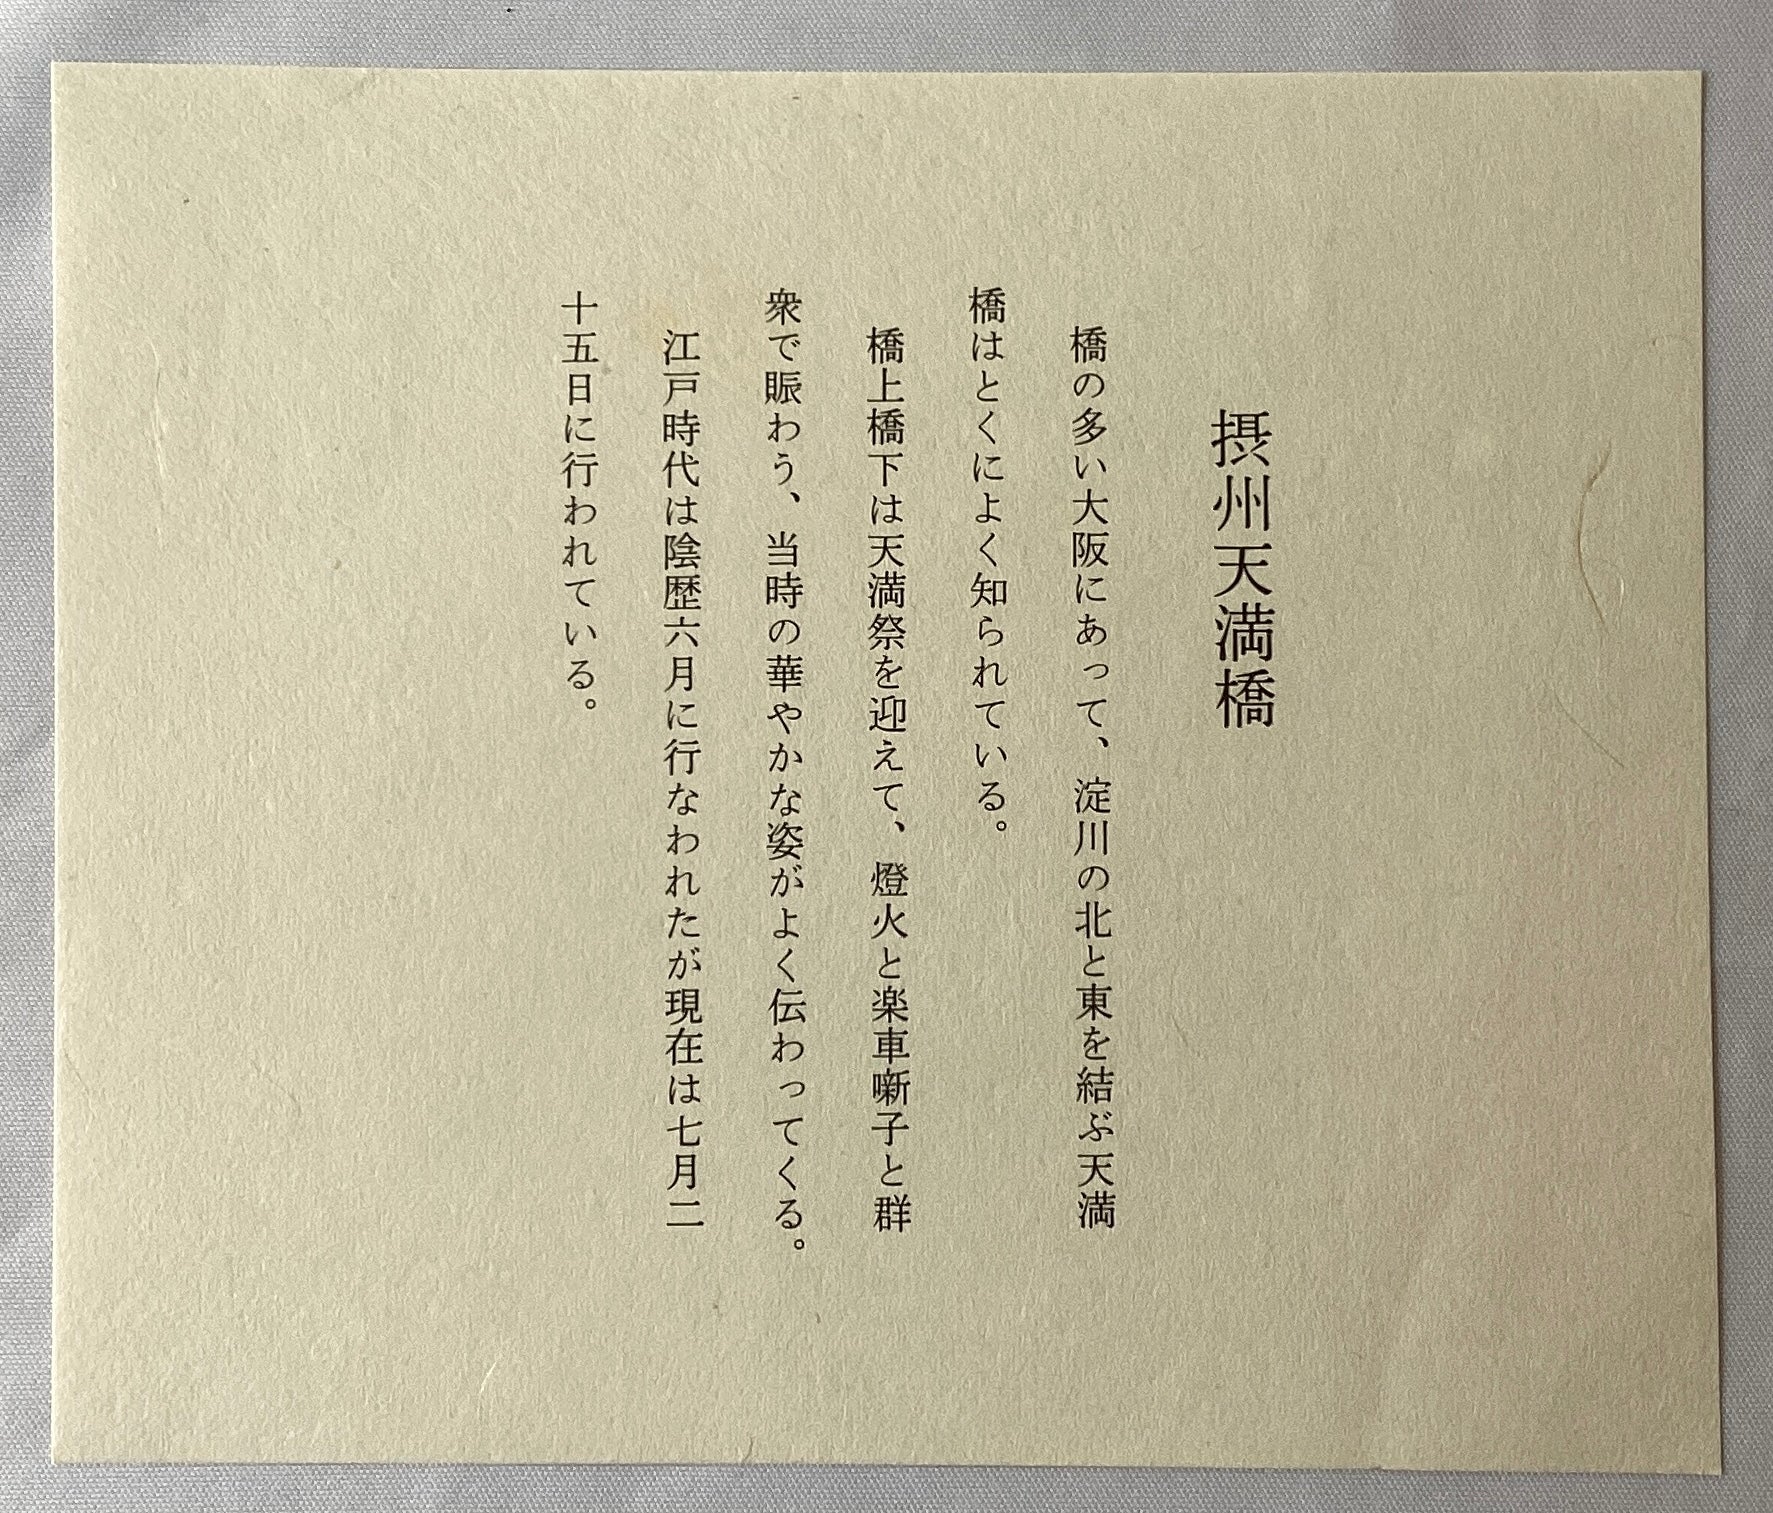 摂州天満橋
橋の多い大阪にあって、淀川の北と東を結ぶ天満
橋はとくによく知られている。
橋上橋下は天満祭を迎えて、燈火と楽車噺子と群
衆で賑わう、当時の華やかな姿がよく伝わってくる。
江戸時代は陰歴六月に行なわれたが現在は七月二
十五日に行われている。